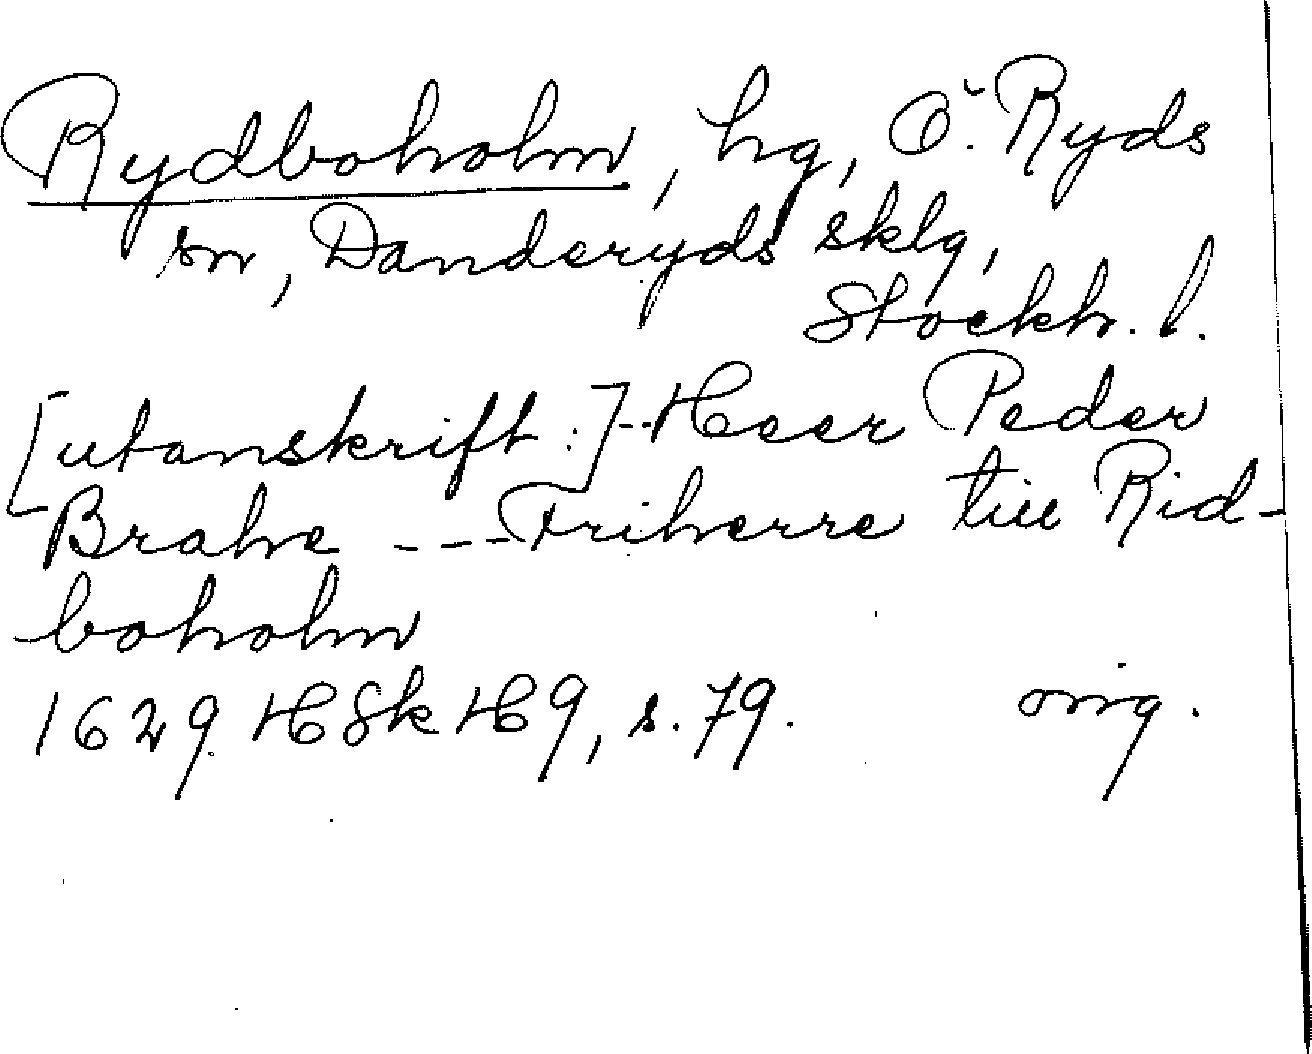 Rydboholm, hg, Ö. Ryds
sn, Danderyds sklg,
Stockh. l.
[utanskrift:]--Heer Peder
Brahe ---Friherre till Rid-
boholm
1629 HSkH9, s. 79. orig.